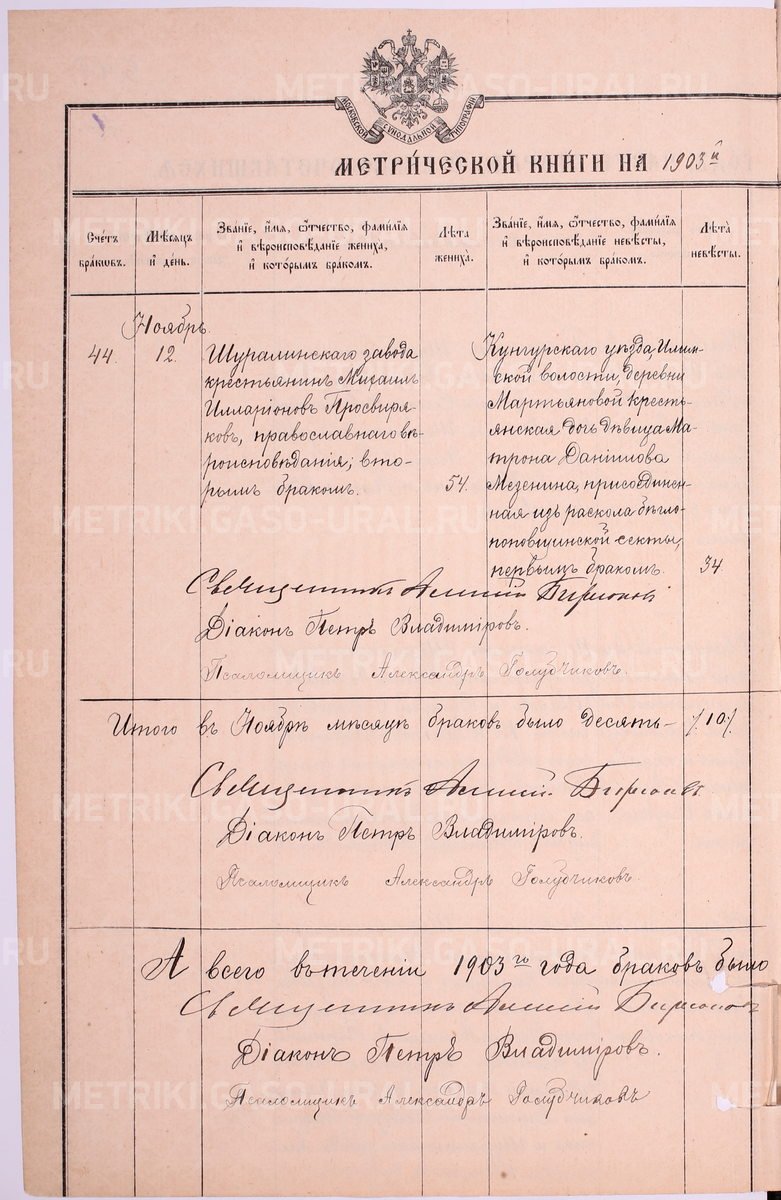 МОСКОВСКОЙ СѴНОДАЛЬНОЙ ТИПОГРАФІИ
МЕТРИ́ЧЕСКОЙ КНИ́ГИ НА 1903й
Сче́тъ бра́кωвъ.
Мѣ́сяцъ и҆ де́нь.
Зва́нїе, и҆́мѧ, ѻ҆́тчество, фами́лїѧ и҆ вѣроисповѣ́данїе жениха̀, и҆ кото́рымъ бра́комъ.
Лѣ́та жениха̀.
Зва́нїе, и҆́мѧ, ѻ҆́тчество, фами́лїѧ и҆ вѣроисповѣ́данїе невѣ́сты, и҆ кото́рымъ бра́комъ.
Лѣ́та невѣ́сты.
Ноябрь.
44. 12.
Шуралинскаго завода
крестьянинъ Михаилъ
Илларіоновъ Просвиря-
ковъ, православнаго вѣ-
роисповѣданія; вто-
рымъ бракомъ.
54.
Кунгурскаго уѣзда, Илим-
ской волости, деревни
Мартьяновой кресть-
янская дочь дѣвица Ма-
трона Даніилова
Мезенина, присоединен-
ная изъ раскола бѣгло-
поповщинской секты,
первымъ бракомъ.
34
Священникъ Алексій
Діаконъ Петръ Владиміровъ.
Псаломщикъ Александръ Голубчиковъ.
Итого въ Ноябрѣ мѣсяцѣ браковъ было десять — /.10./
Священникъ Алексій
Діаконъ Петръ Владиміровъ.
Псаломщикъ Александръ Голубчиковъ.
А всего втеченіи 1903го года браковъ было
Священникъ Алексій
Діаконъ Петръ Владиміровъ.
Псаломщикъ Александръ Голубчиковъ
METRIKI.GASO-URAL.RU